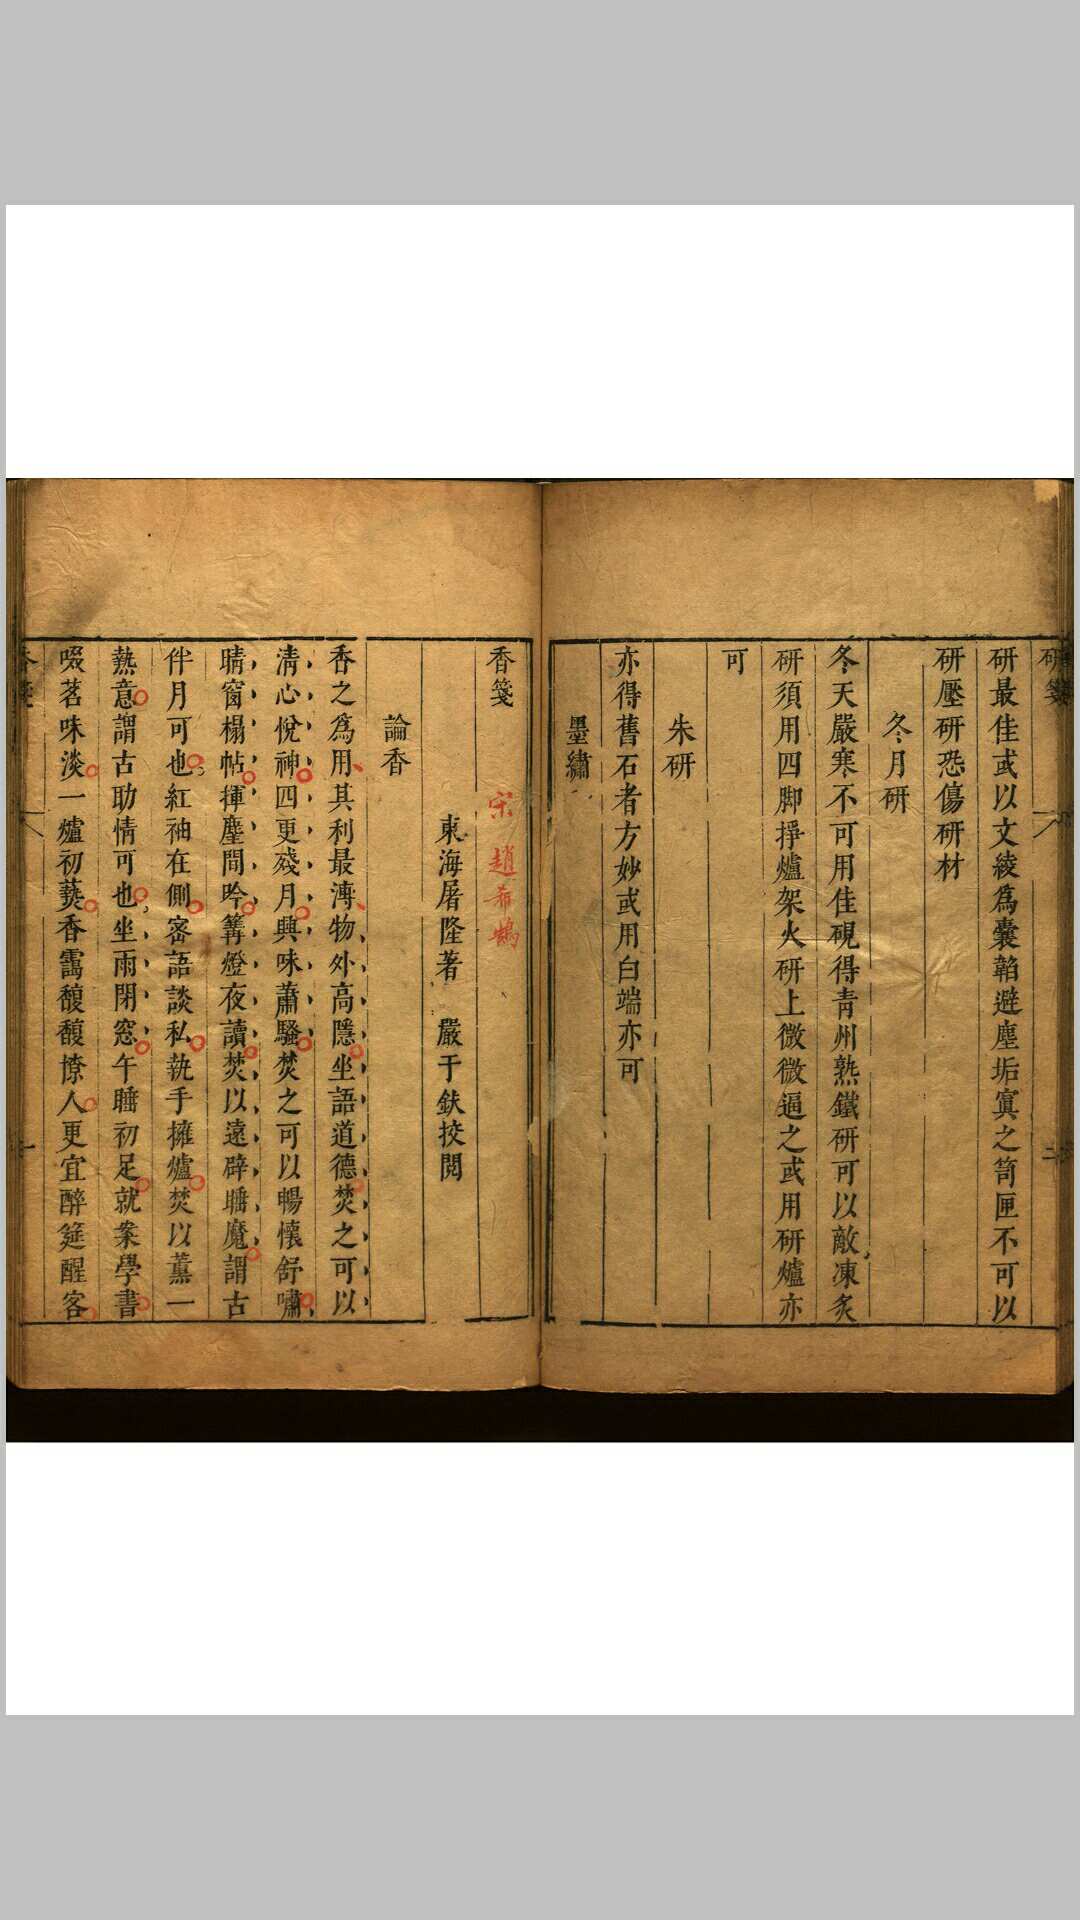 研箋
研最佳或以文綾為囊韜避塵垢寘之笥匣不可以
研壓研恐傷研材
冬月研
冬天嚴寒不可用佳硯得青州熟鐵研可以敵凍炙
研須用四脚掙爐架火研上微微逼之或用研爐亦
可
朱研
亦得舊石者方妙或用白端亦可
墨繡
香箋
宋 趙希鵠
東海屠隆著 嚴于鈇挍閲
論香
香之爲用其利最溥物外高隱坐語道德焚之可以
清心悅神四更殘月興味蕭騷焚之可以暢懷舒嘯
晴窗榻帖揮麈間吟篝燈夜讀焚以遠辟睡魔謂古
伴月可也紅袖在側密語談私執手擁爐焚以薰一
熱意謂古助情可也坐雨閉窓午睡初足就案學書
啜茗味淡一爐初爇香靄馥馥撩人更宜醉筵醒客